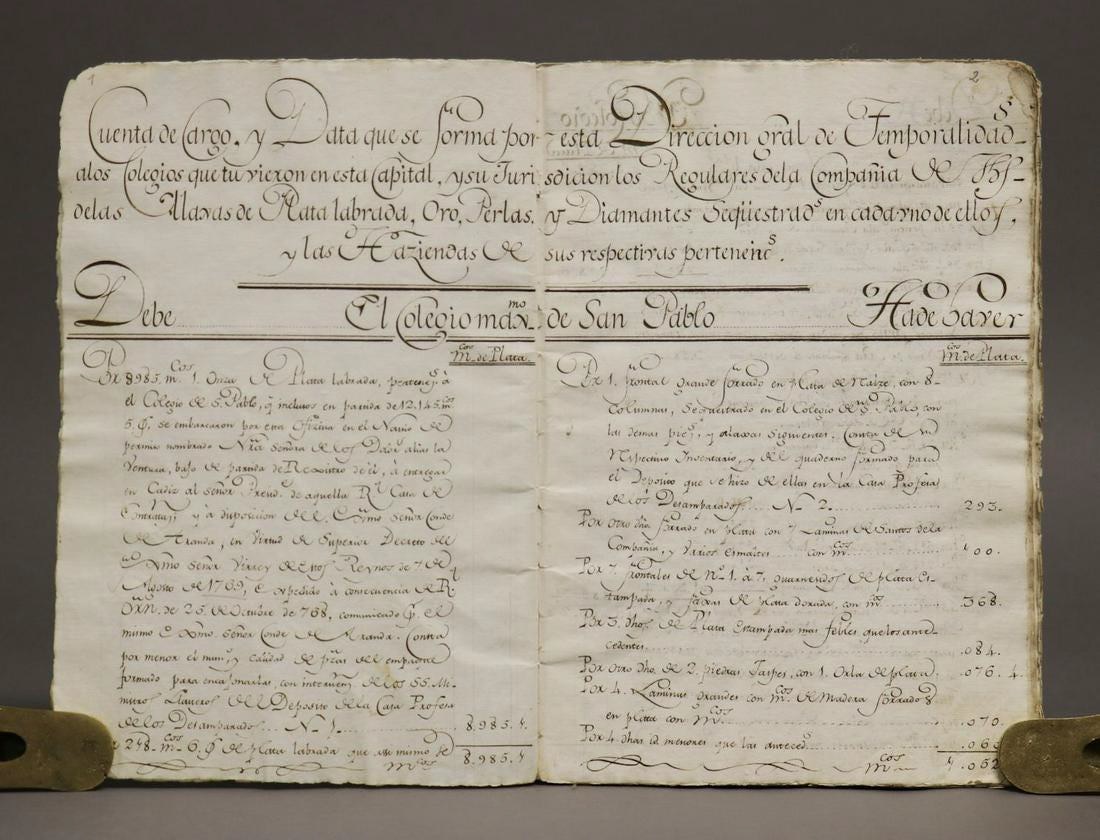 1
2
Cuenta de Cargo, y Data que se forma por esta Direccion gral de Temporalidads
alos Colegios que tuvieron en esta Capital, y su Jurisdicion los Regulares dela Compañia de Jhs
delas Allaxas de Plata labrada, Oro, Perlas, y Diamantes Seqüestrads en cada vno de ellos,
y las Haziendas de sus respectivas pertenencs.
Debe El Colegio maxmo de San Pablo Ha de haver
mcos de Plata.
Por 8985. mcos 1. Onza de Plata labrada, pertenecte a
el Colegio de S. Pablo, q incluios en partida de 12.145. ms
5. O, se embarcaron por esta Oficina en el Navio de
permiso nombrado Nra Señora de los Dolors alias la
Ventura, bajo de partida de Rexistro de el, a entregar
en Cadiz al Señor Presid. de aquella Rl Casa de
Contratan, y à disposicion del Exmo Señor Conde
de Aranda, en Virtud de Superior Decreto del
Exmo Señor Virrey de estos Reynos de 7 de
Agosto de 1769, expedido à consecuencia de R
Orn. de 25. de Octubre de 768, comunicado p. el
mismo Exmo Señor Conde de Aranda. Consta
por menor el num, y calidad de pzas del
formado para encaxonarlas, con intervenn de los SS. Mi-
nistros Llaveros del Deposito de la Casa Profesa
de los Desamparados. No 1. 8.985.1.
248. mcos 6. O de plata labrada que asi mismo se
mcos 8.985.1
mcos de Plata.
Por 1. frontal grande forrado en plata de Maize, con 8-
Columnas, Sequestrado en el Colegio de Sn Pablo, con
las demas pies, y alaxas siguientes. Consta de su
respectivo Inventario, y del quaderno formado para
el Deposito que se hizo de ellas en la Casa Profesa
de los Desamparados No 2. 293.
Por otro dho forrado en plata con 7 Laminas de Santos de la
Compañia, y varios esmaltes con mcos 100.
Por 7. frontales de no 1. à 7. guarnesidos de plata Es-
tampada, y faxas de plata dorada, con mcos 368.
Por 3. dhos de Plata Estampada mas febles que los ante-
cedentes 084.
Por otro dho. de 2. piedras Jaspes, con 1. Orla de plata. 076. 4.
Por 4. Laminas grandes con mcos de Madera forrados
en plata con mcos 070.
Por 4. dhas id menores que las anteceds .060
mcos 1.052